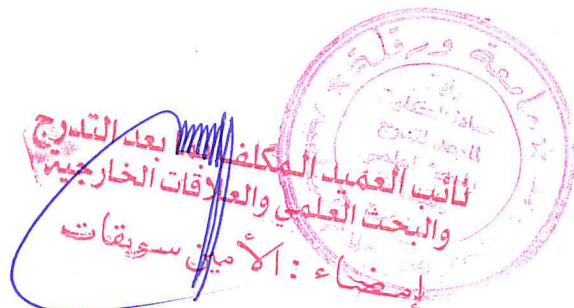 جامعة ورقلة
نائب العميد المكلف بما بعد التدرج
والبحث العلمي والعلاقات الخارجية
إمضاء : الأمين سويقات